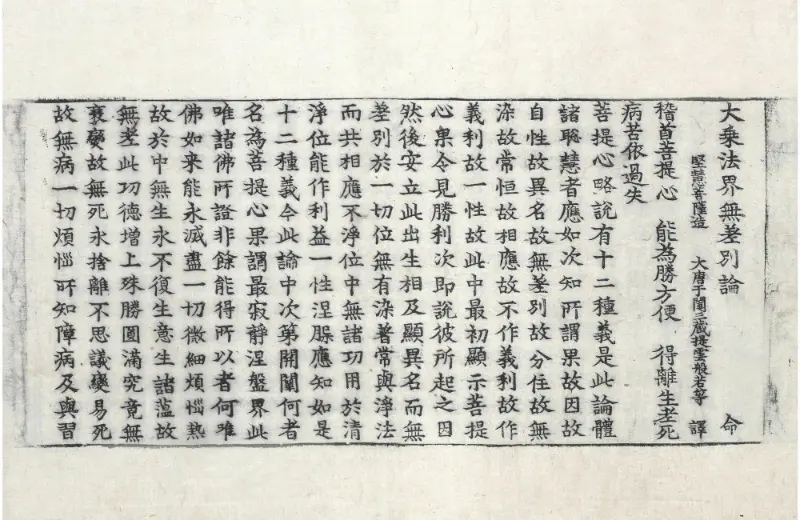 大乘法界無差別論 命
堅慧菩薩造 大唐于闐三藏提雲般若等 譯
稽首菩提心 能為勝方便 得離生老死
病苦依過失
菩提心略說有十二種義是此論體
諸聦慧者應如次知所謂果故因故
自性故異名故無差別故分住故無
染故常恒故相應故不作義利故作
義利故一性故此中最初顯示菩提
心果令見勝利次即說彼所起之因
然後安立此出生相及顯異名而無
差別於一切位無有染著常與淨法
而共相應不淨位中無諸功用於清
淨位能作利益一性涅槃應知如是
十二種義今此論中次第開闡何者
名為菩提心果謂最寂靜涅盤界此
唯諸佛所證非餘能得所以者何唯
佛如来能永滅盡一切微細煩惱熱
故於中無生永不復生意生諸藴故
無老此功德增上殊勝圓滿究竟無
衰變故無死永捨離不思議變易死
故無病一切煩惱所知障病及與習